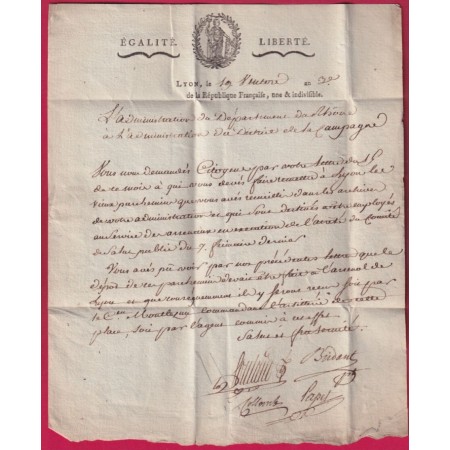 ÉGALITÉ. LIBERTÉ.
LYON, le 19 Ventose an 3e
de la République Française, une & indivisible.
L'Administration du Département du Rhône
à L'administration du District de la Campagne
Vous nous demandés Citoyens par votre lettre du 15
de ce mois à qui vous devés faire remettre à Lyon les
vieux parchemins que vous avés recueillis dans les archives
de votre administration et qui sont destinés a être employés
au service de en exécution de l'arrêté du Comité
de Salut public du 7. frimaire dernier
Vous avés pu voir par nos précédentes lettres que le
dépôt de ces parchemins devait être fait à l'arsenal de
Lyon et que conséquemment ils y seront reçus soit par
le Cen commandant l'artillerie de cette
place, soit par l'agent commis à cet effet.
Salut et fraternité.